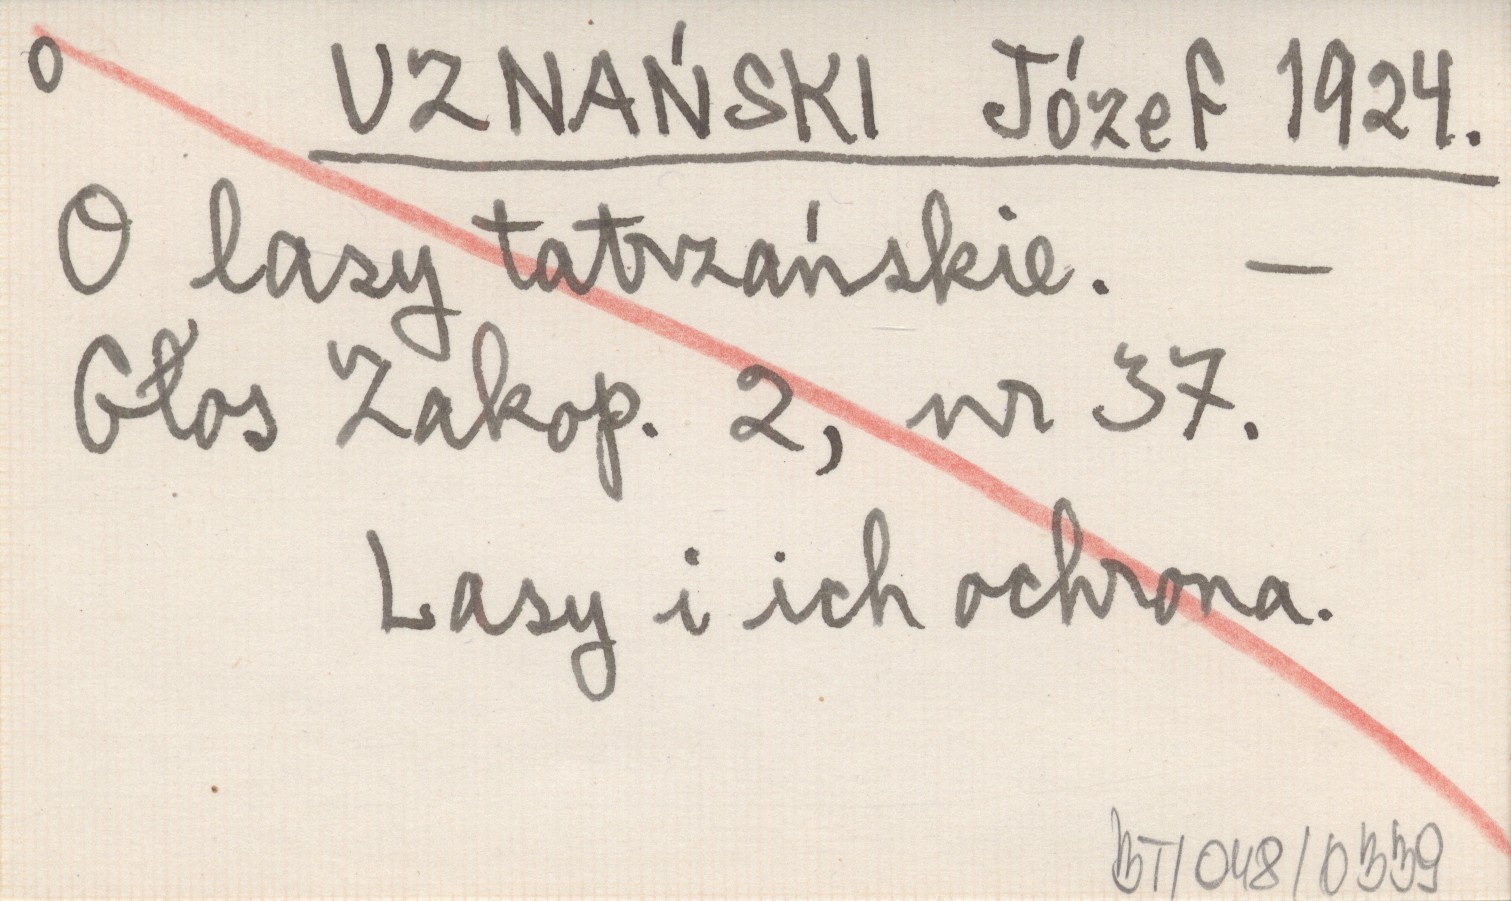 O UZNAŃSKI Józef 1924.
O lasy tatrzańskie. —
Głos Zakop. 2, nr 37.
Lasy i ich ochrona.
BT/048/0339